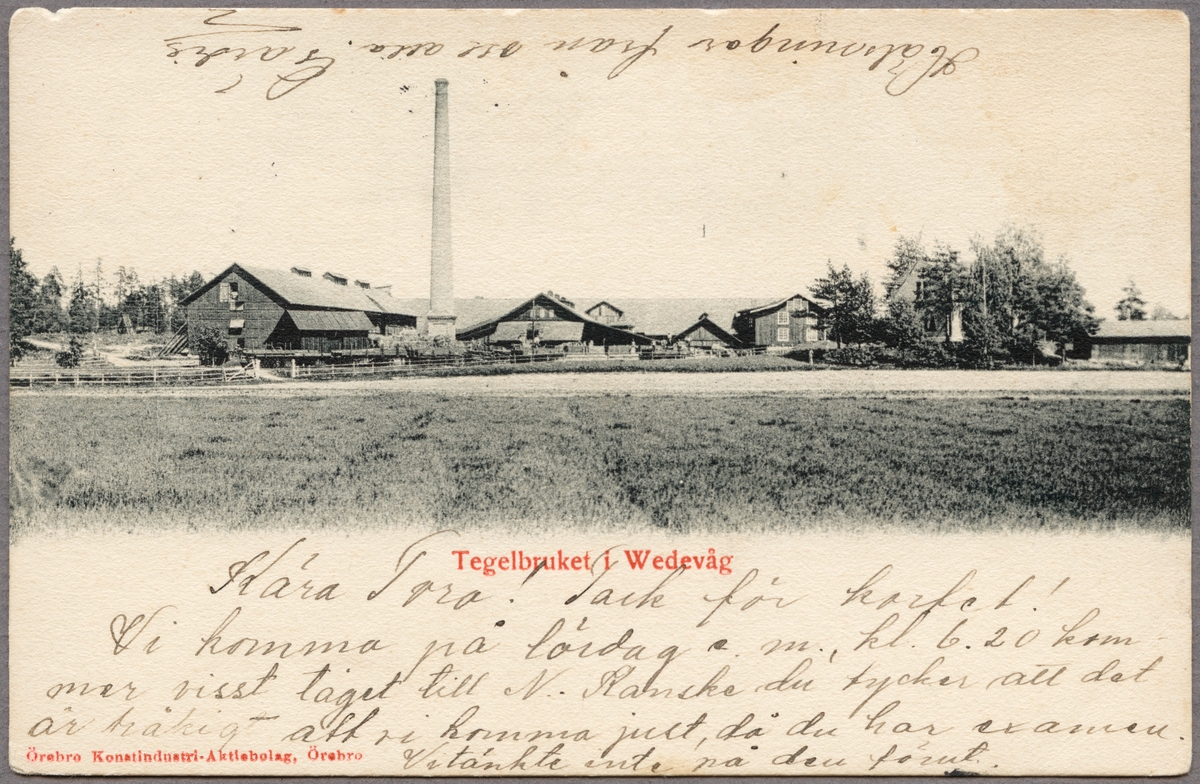 Hälsningar från oss alla.
Tegelbruket i Wedevåg
Kära Tora! Tack för kortet!
Vi komma på lördag e. m., kl. 6.20 kom-
mer visst tåget till N. Kanske du tycker att det
är tråkigt att vi komma just, då du har examen.
Vi tänkte inte på den förut.
Örebro Konstindustri-Aktiebolag, Örebro